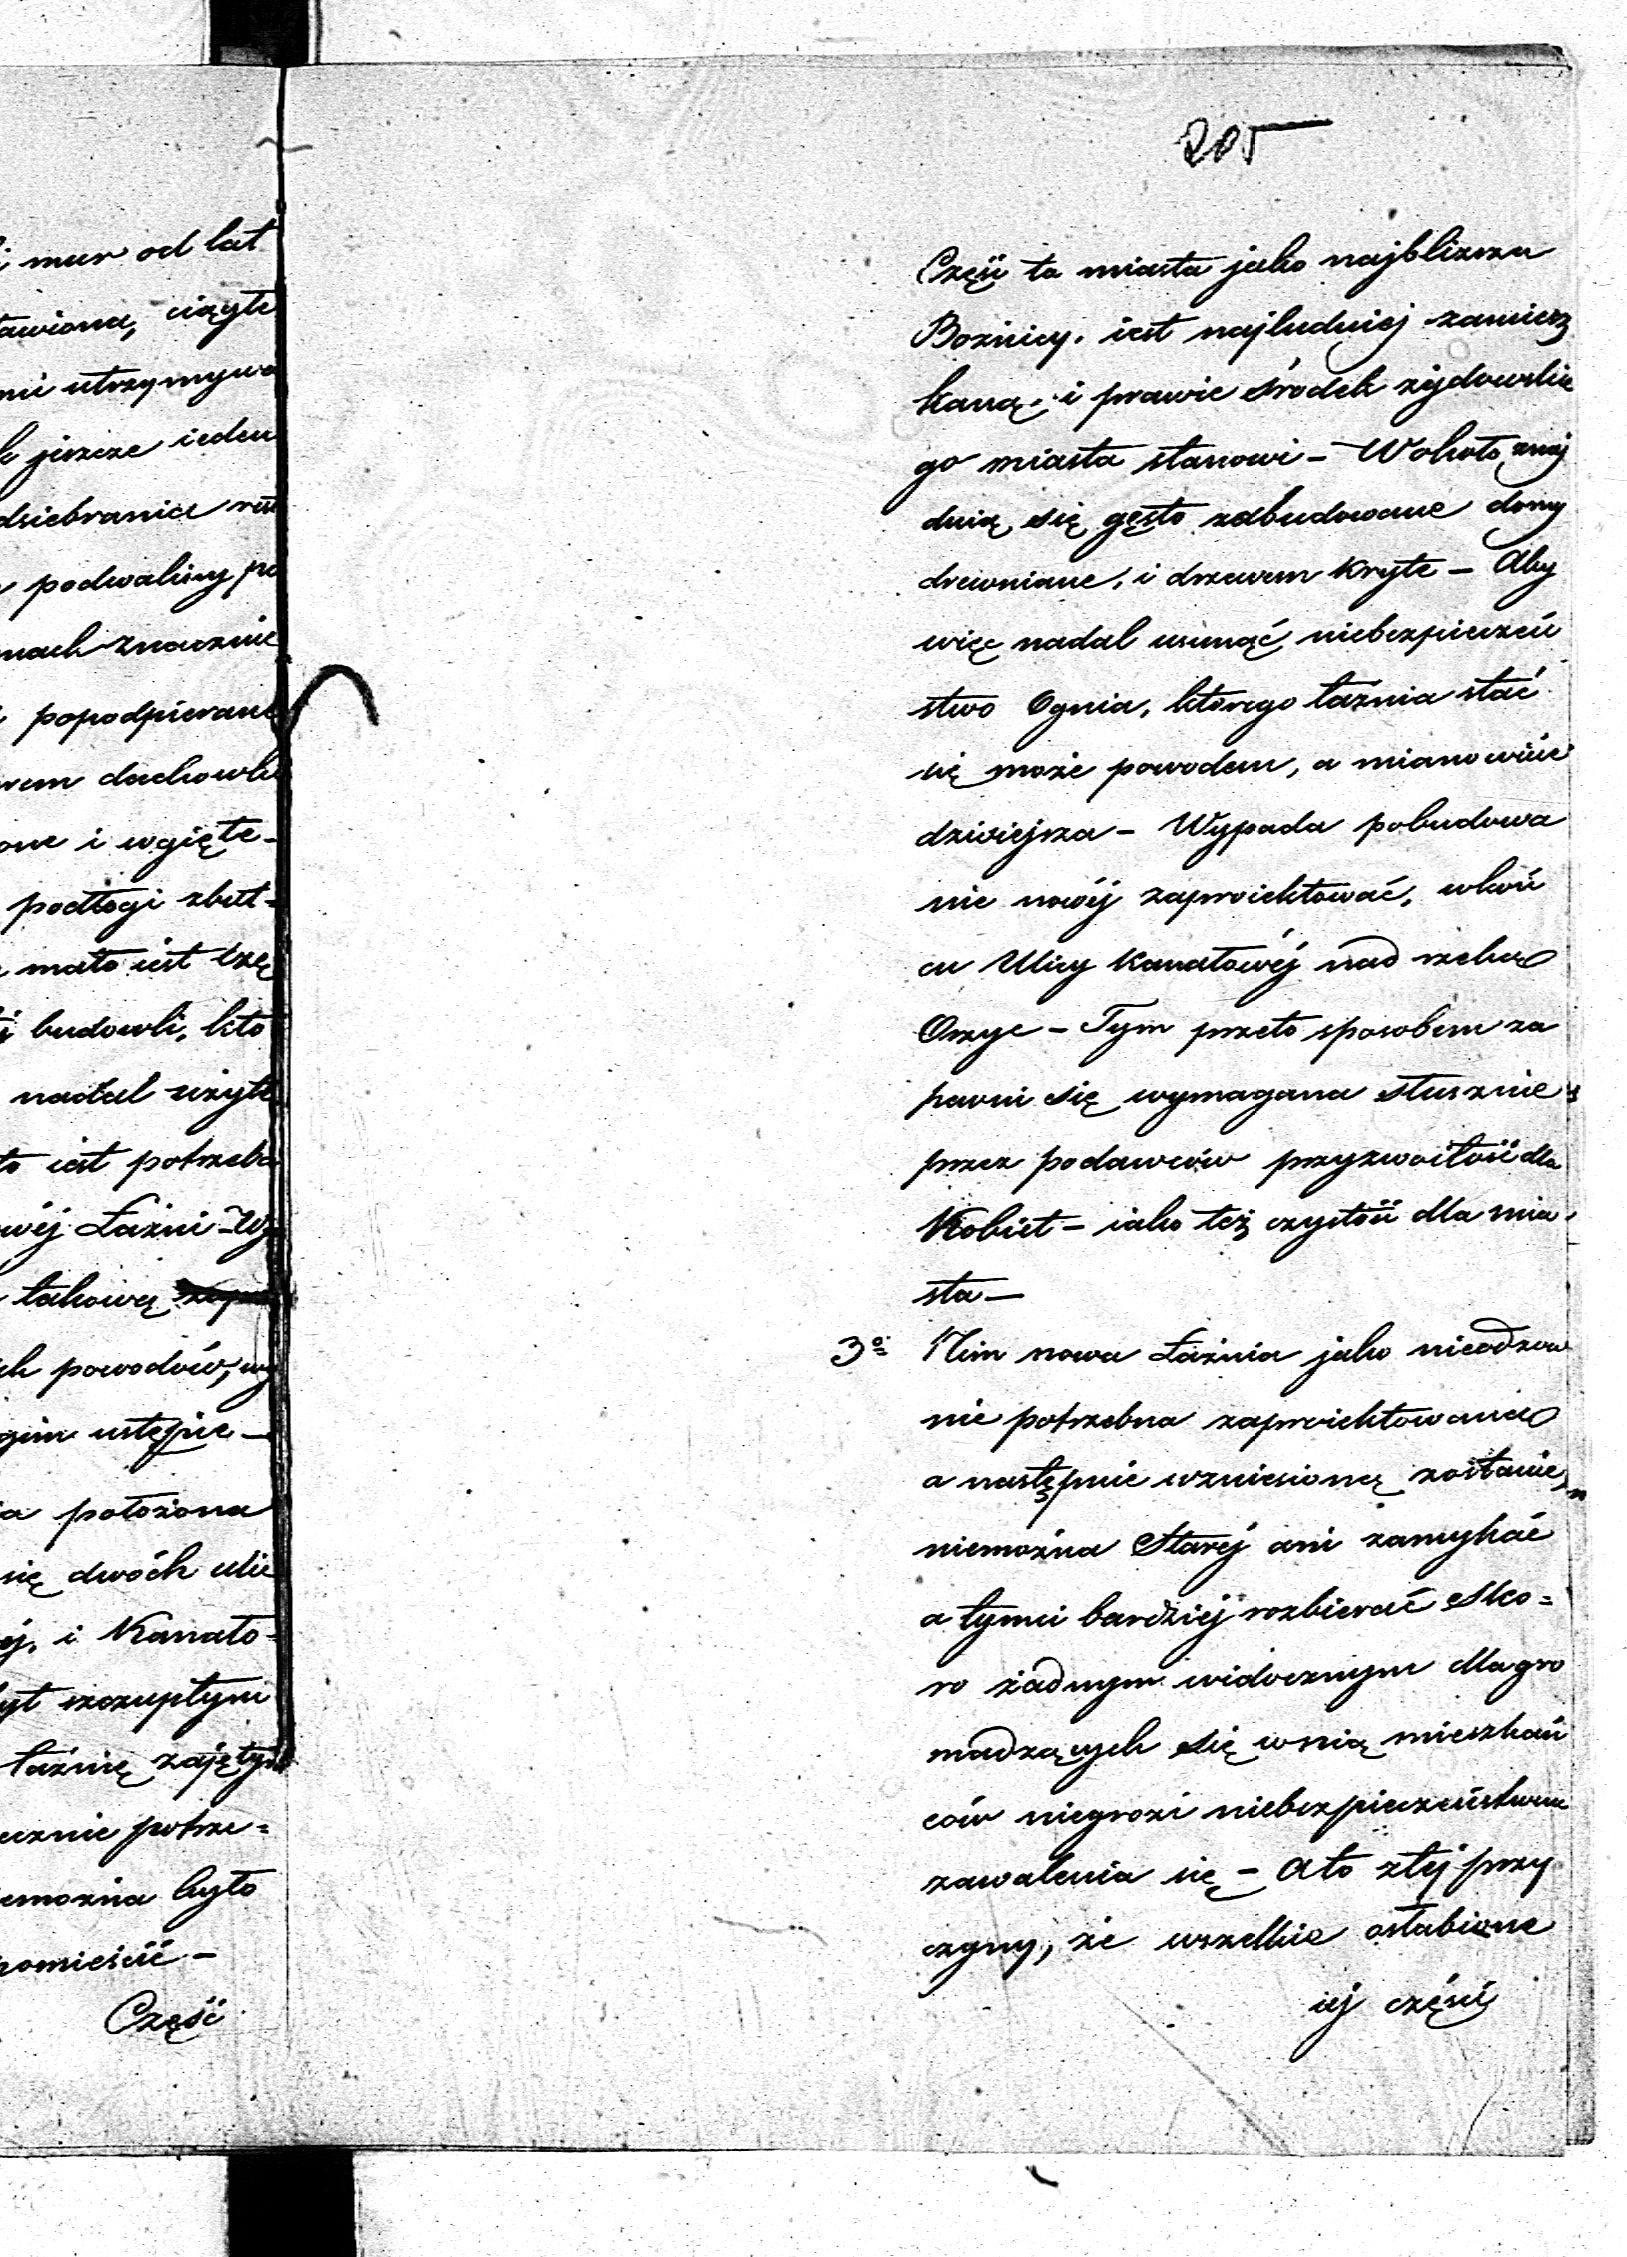 i mur od lat
tawiona, ciągłe
mi utrzymywa
k jeszcze ieden
dziebranice
podwaliny po
nach znacznie
popodpierane
rem dachowk
one i wgięte -
podłogi zbut-
mało iest czę
i budowli, kto
nadal użyte
to iest potrzeba
wéj Łaźni - Wy
takową
ch powodów, wy
gim ustępie -
ia położona
się dwóch ulic
éj, i Kanato-
yt szczupłym
łaźnię zajętym
ecznie potrze=
emożna było
pomieścić -
Część
205
Część ta miasta jako najbliższa
Bożnicy. iest najludniej zamiesz
kaną. i prawie środek żydowskie
go miasta stanowi - Wokoło znaj
duią się gęsto zabudowane domy
drewniane, i drzewem kryte - Aby
więc nadal usunąć niebezpieczeń
stwo Ognia, którego łaźnia stać
się może powodem, a mianowicie
dzisiejsza - Wypada pobudowa
nie nowéj zaproiektować, wkoń
cu Ulicy Kanatowéj nad rzeką
Orzyc - Tym przeto sposobem za
pewni się wymagana słusznie
przez podawców przyzwoitość dla
Kobiet - iako też czystość dla mia-
sta -
3o Nim nowa Łaźnia jako nieodzow
nie potrzebna zaproiektowaną
a następnie wzniesioną zostanie,
niemożna Staréj ani zamykać
a tymci bardziéj rozbierać sko=
ro żadnym widocznym dla gro
madzących się w nią mieszkań
ców niegrozi niebezpieczeństwem
zawalenia się - A to z téj przy
czyny, że wszelkie osłabione
iéj części